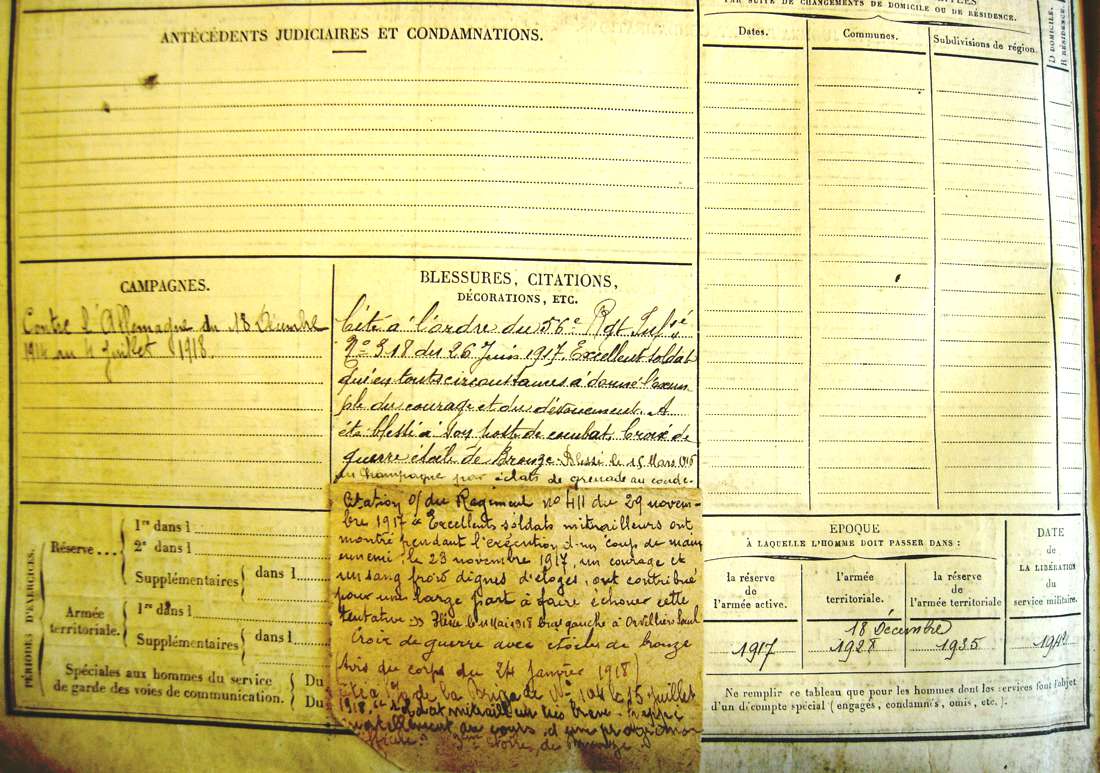 ANTÉCÉDENTS JUDICIAIRES ET CONDAMNATIONS.
PAR SUITE DE CHANGEMENTS DE DOMICILE OU DE RÉSIDENCE.
Dates.
Communes.
Subdivisions de région.
D DOMICILE.
R RÉSIDENCE.
CAMPAGNES.
Contre l'Allemagne du 18 Décembre
1914 au 4 Juillet 1918.
BLESSURES, CITATIONS,
DÉCORATIONS, ETC.
Cité à l'ordre du 56e Rgt Inf
No 318 du 26 Juin 1917. Excellent soldat
qui en toutes circonstances a donné l'exem
ple du courage et du dévouement. A
été blessé à son poste de combat. Croix de
guerre étoile de Bronze. Blessé le 15 Mars 1915
en Champagne par éclats de grenade au coude.
Citation o/ du Regiment no 411 du 29 novem-
bre 1917 " Excellents soldats mitrailleurs ont
montré pendant l'exécution d'un coup de main
ennemi le 23 novembre 1917, un courage et
un sang froid dignes d'éloges, ont contribué
pour une large part à faire échouer cette
tentative " mai 1918 bras gauche à Orvillers Sorel
Croix de guerre avec étoiles de bronze
Avis du corps du 24 Janvier 1918
de la Brigade No 104 15 Juillet
1918 " soldat mitrailleur très brave - frappé
mortellement au cours d'une progression
étoile de Bronze
PÉRIODES D'EXERCICES.
Réserve...
1re dans l
2e dans l
Supplémentaires
dans l
Armée
territoriale.
1re dans l
Supplémentaires
dans l
Spéciales aux hommes du service
de garde des voies de communication.
Du
Du
EPOQUE
À LAQUELLE L'HOMME DOIT PASSER DANS :
la réserve
de
l'armée active.
l'armée
territoriale.
la réserve
de
l'armée territoriale
DATE
de
LA LIBÉRATION
du
service militaire.
18 Décembre
1917
1928
1935
Ne remplir ce tableau que pour les hommes dont les services font l'objet
d'un décompte spécial (engagés, condamnés, omis, etc.).